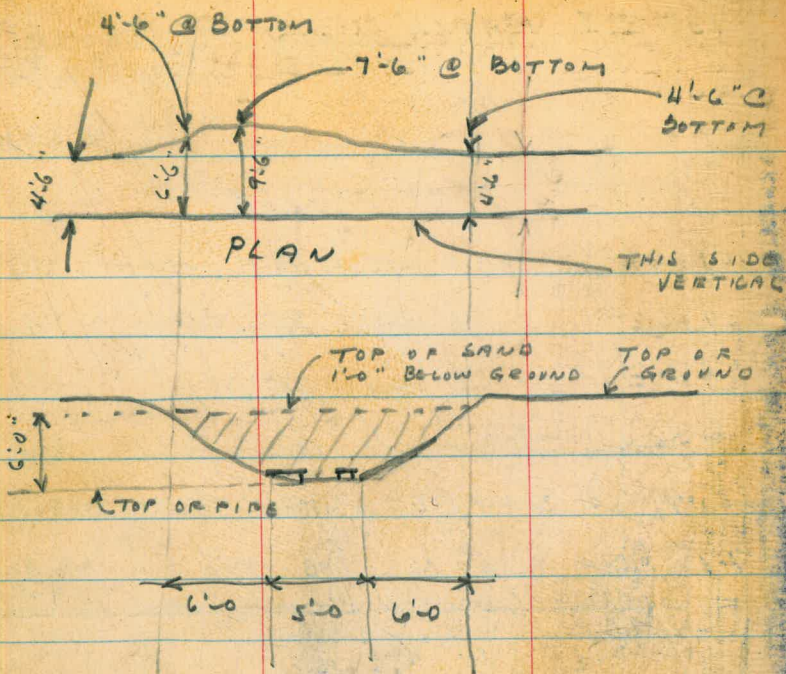 4'-6" @ BOTTOM
7'-6" @ BOTTOM
4'-6" @
BOTTOM
4'6"
6'-6"
9'-6"
4'-6"
PLAN
THIS SIDE
VERTICAL
TOP OF SAND
1'-0" BELOW GROUND
TOP OF
GROUND
6'-0"
TOP OF PIPE
6'-0
5'-0
6'-0